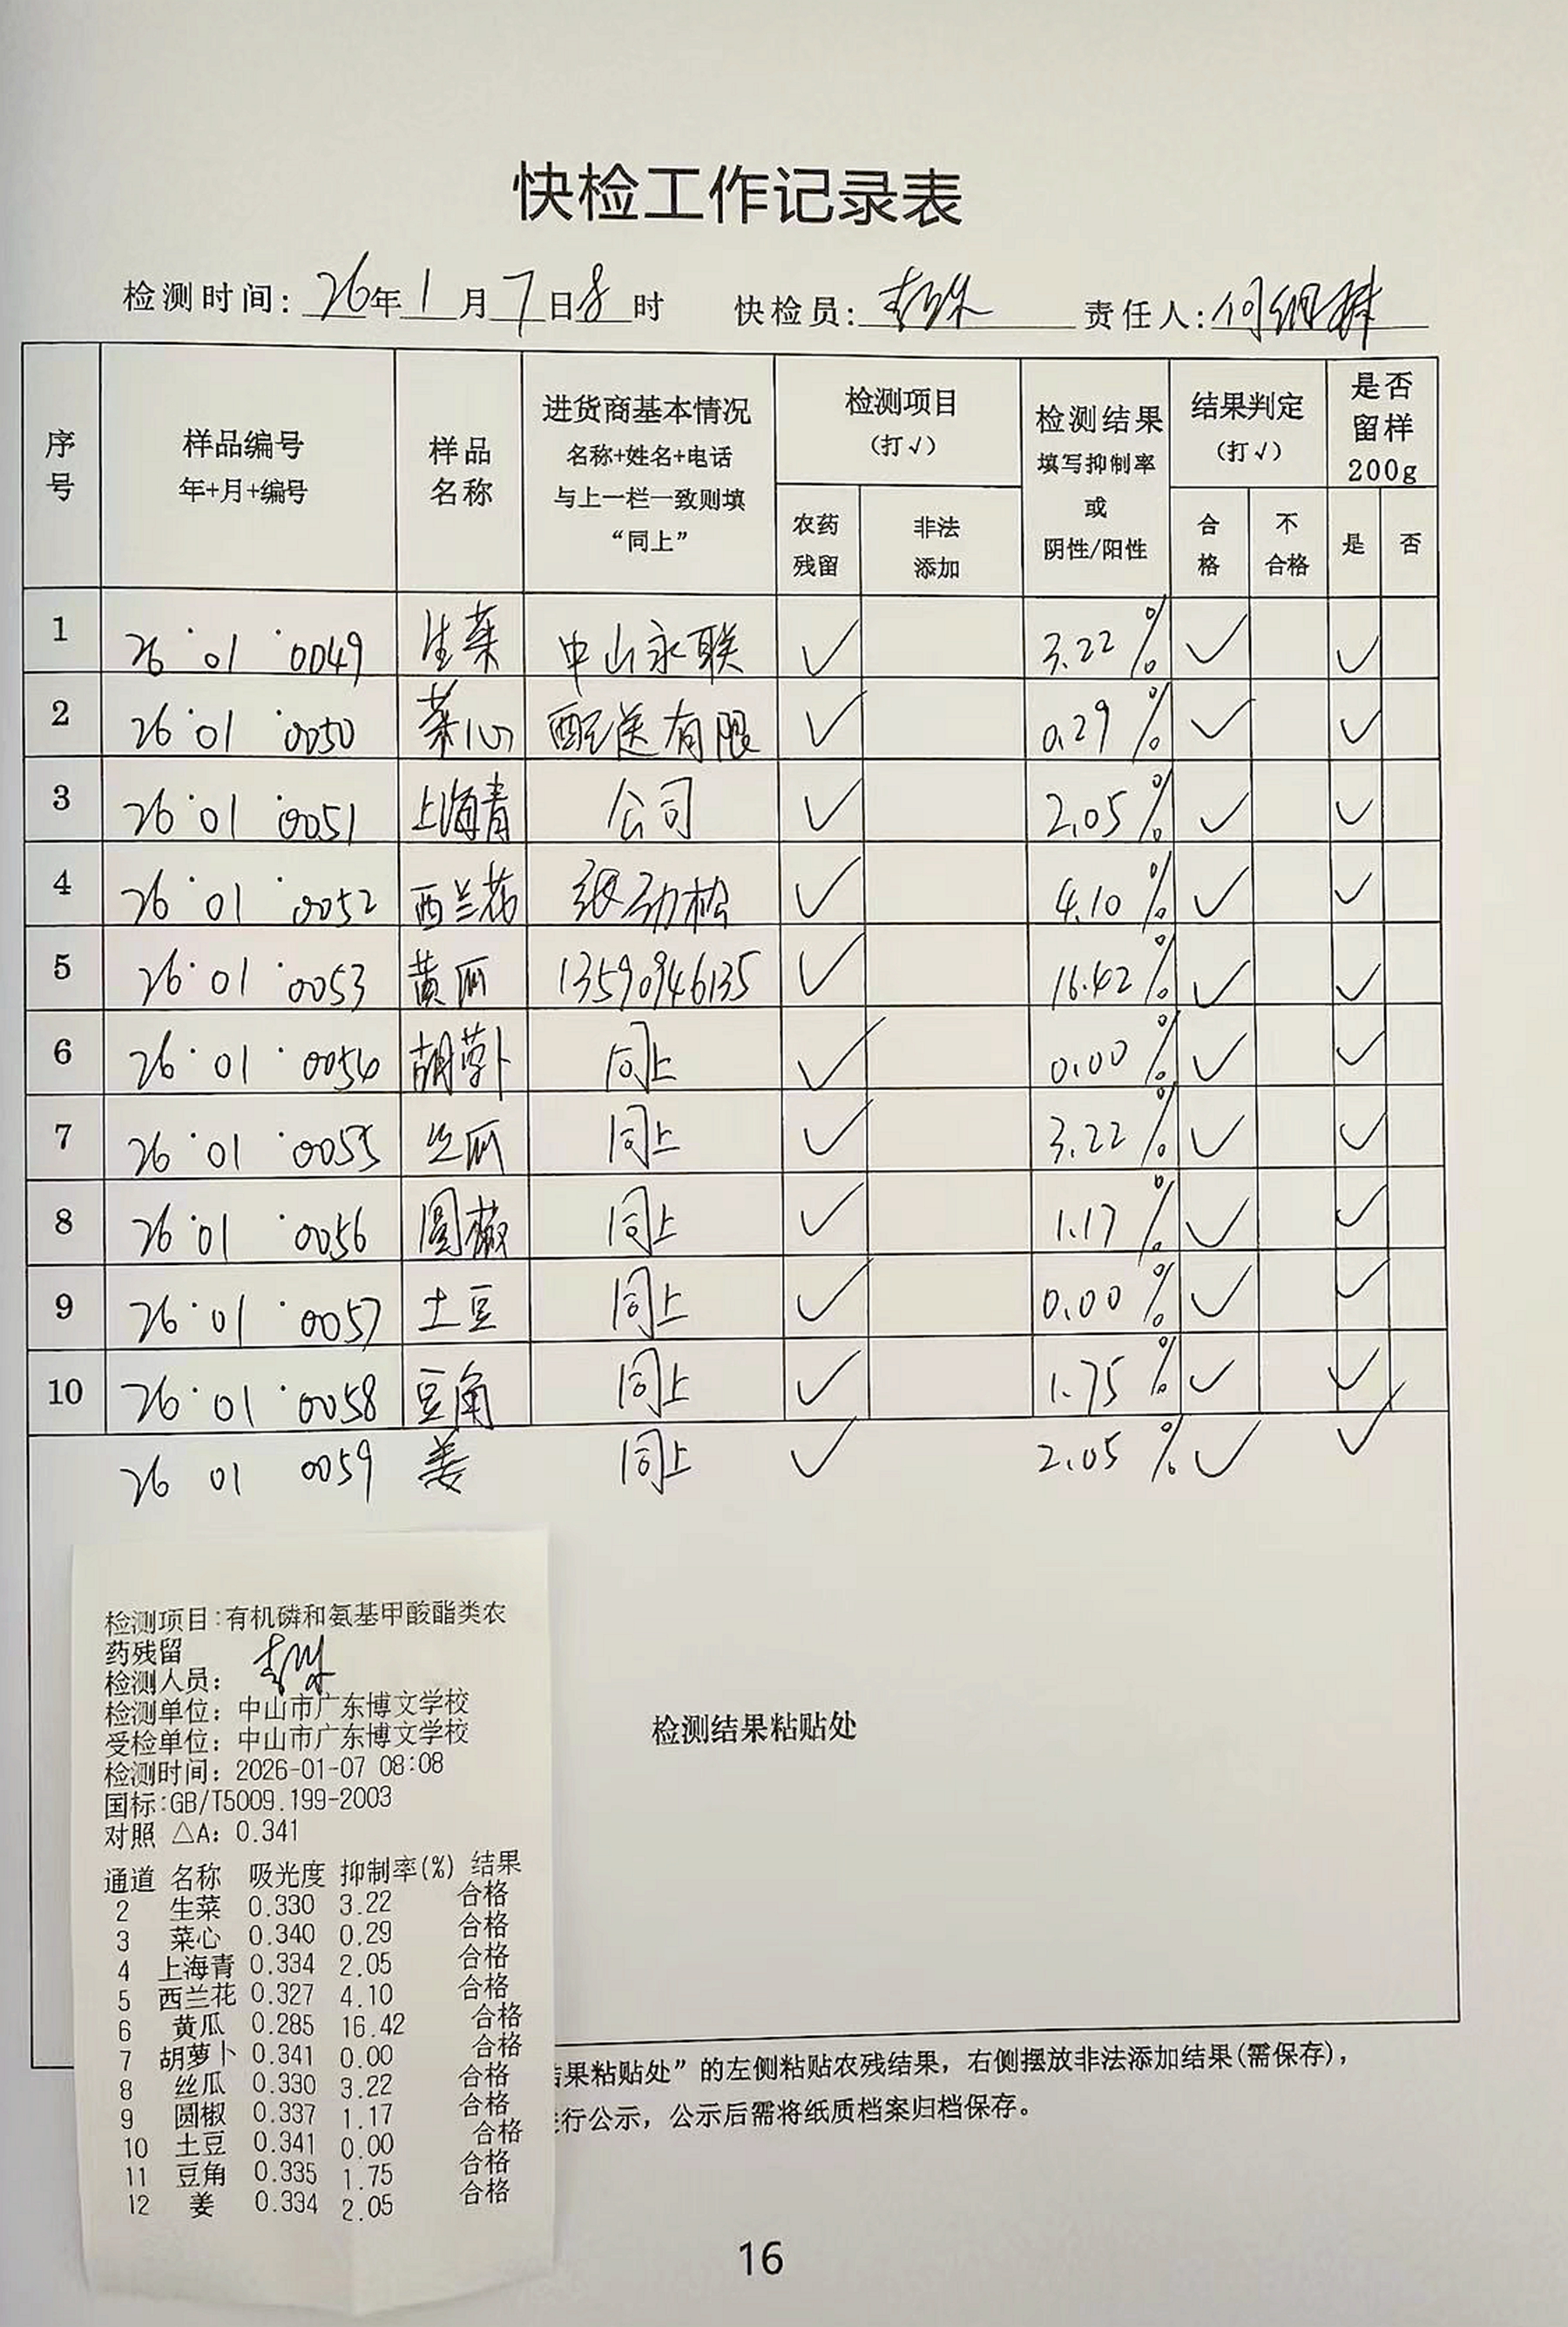 快检工作记录表
检测时间: 26年1月7日8时 快检员: 责任人:
序号 样品编号 年+月+编号 样品名称 进货商基本情况 名称+姓名+电话 与上一栏一致则填“同上” 检测项目(打√) 检测结果 填写抑制率或阴性/阳性 结果判定(打√) 是否留样200g
农药残留 非法添加 合格 不合格 是 否
1 26·01·0049 生菜 中山永联 ✓ 3.22% ✓ ✓
2 26·01·0050 菜心 配送有限 ✓ 0.29% ✓ ✓
3 26·01·0051 上海青 公司 ✓ 2.05% ✓ ✓
4 26·01·0052 西兰花 张劲松 ✓ 4.10% ✓ ✓
5 26·01·0053 黄瓜 13590946135 ✓ 16.42% ✓ ✓
6 26·01·0054 胡萝卜 同上 ✓ 0.00% ✓ ✓
7 26·01·0055 丝瓜 同上 ✓ 3.22% ✓ ✓
8 26·01·0056 圆椒 同上 ✓ 1.17% ✓ ✓
9 26·01·0057 土豆 同上 ✓ 0.00% ✓ ✓
10 26·01·0058 豆角 同上 ✓ 1.75% ✓ ✓
26 01 0059 姜 同上 ✓ 2.05% ✓ ✓
检测项目:有机磷和氨基甲酸酯类农
药残留
检测人员:
检测单位: 中山市广东博文学校
受检单位: 中山市广东博文学校
检测时间: 2026-01-07 08:08
国标:GB/T5009.199-2003
对照 △A: 0.341
通道 名称 吸光度 抑制率(%) 结果
2 生菜 0.330 3.22 合格
3 菜心 0.340 0.29 合格
4 上海青 0.334 2.05 合格
5 西兰花 0.327 4.10 合格
6 黄瓜 0.285 16.42 合格
7 胡萝卜 0.341 0.00 合格
8 丝瓜 0.330 3.22 合格
9 圆椒 0.337 1.17 合格
10 土豆 0.341 0.00 合格
11 豆角 0.335 1.75 合格
12 姜 0.334 2.05 合格
检测结果粘贴处
果粘贴处”的左侧粘贴农残结果，右侧摆放非法添加结果(需保存)，
行公示，公示后需将纸质档案归档保存。
16